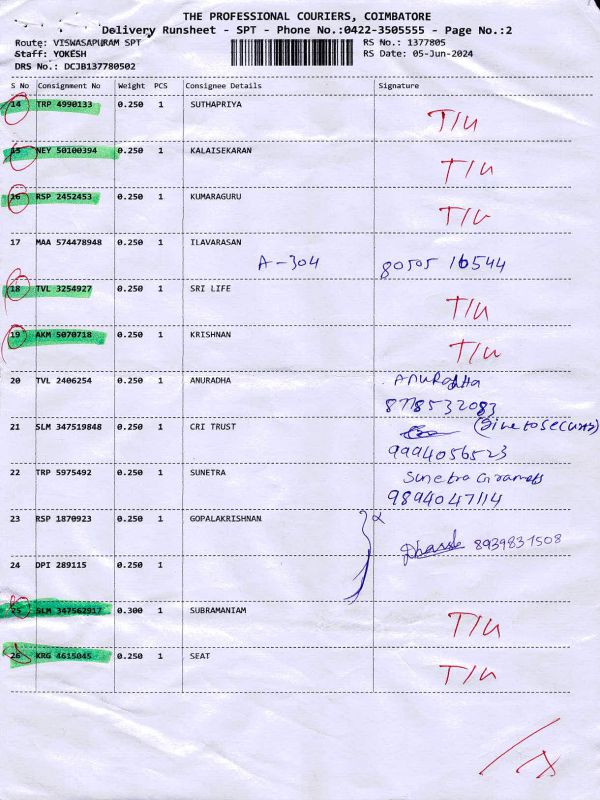 THE PROFESSIONAL COURIERS, COIMBATORE
Delivery Runsheet - SPT - Phone No.:0422-3505555 - Page No.:2
Route: VISWASAPURAM SPT RS No.: 1377805
Staff: YOKESH RS Date: 05-Jun-2024
DRS No.: DCJB137780502
S No Consignment No Weight PCS Consignee Details Signature
14 TRP 4990133 0.250 1 SUTHAPRIYA T/U
15 NEY 50100394 0.250 1 KALAISEKARAN T/U
16 RSP 2452453 0.250 1 KUMARAGURU T/U
17 MAA 574478948 0.250 1 ILAVARASAN
A-304 80505 16544
18 TVL 3254927 0.250 1 SRI LIFE T/U
19 AKM 5070718 0.250 1 KRISHNAN T/U
20 TVL 2406254 0.250 1 ANURADHA Anuradha
8778532083
21 SLM 347519848 0.250 1 CRI TRUST
9994056523
22 TRP 5975492 0.250 1 SUNETRA Sunetra
9894047114
23 RSP 1870923 0.250 1 GOPALAKRISHNAN
8939831508
24 DPI 289115 0.250 1
25 SLM 347562917 0.300 1 SUBRAMANIAM T/U
26 KRG 4615045 0.250 1 SEAT T/U